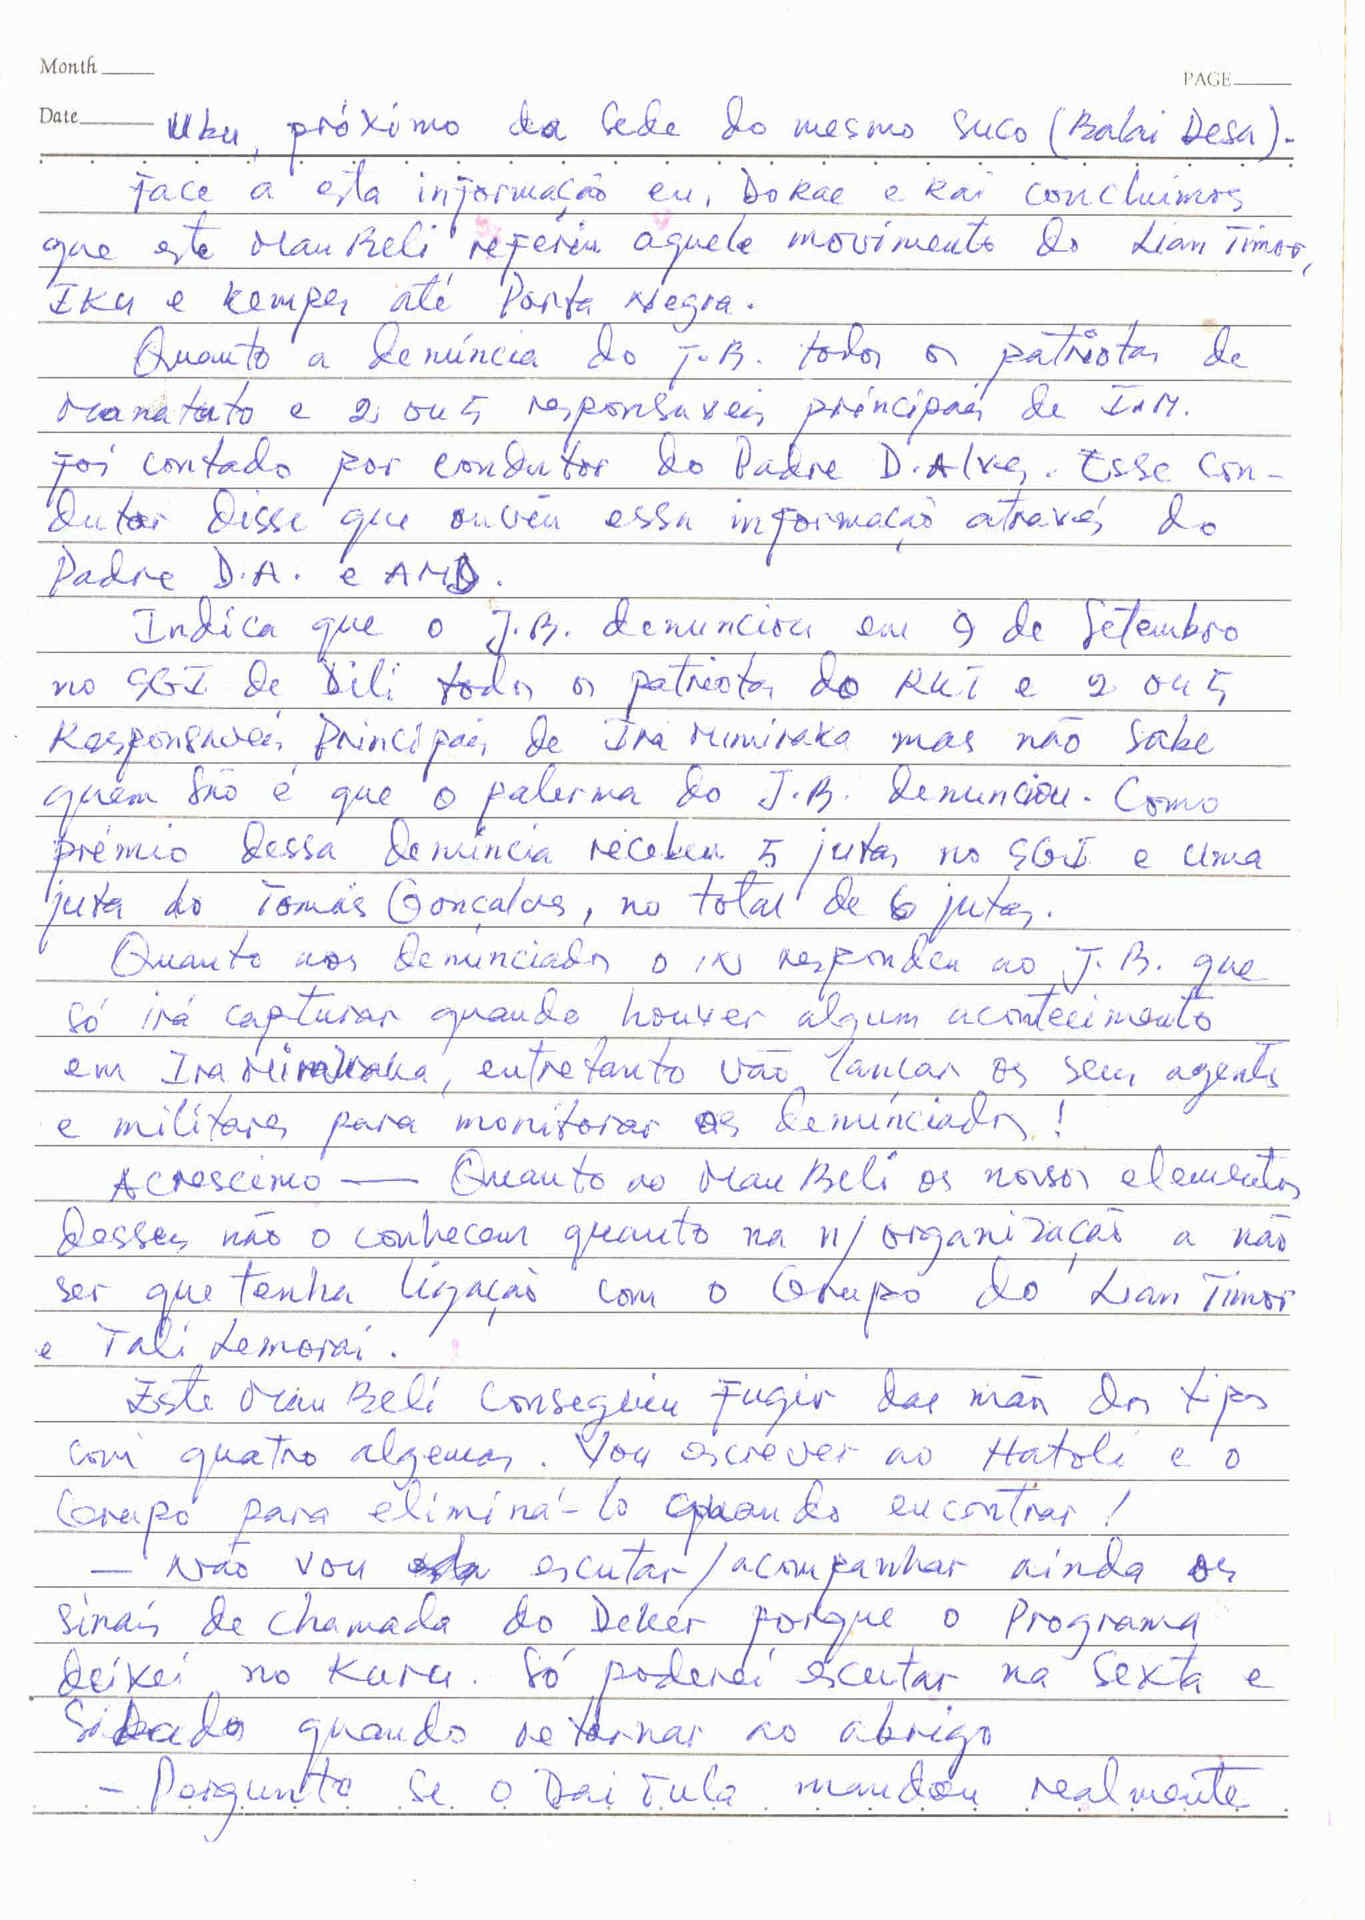 Month
PAGE
Date
Uku, próximo da sede do mesmo suco (Balai Desa).
Face a esta informação eu, Dokae e Rai concluimos
que este Mau Beli referiu aquele movimento do Lian Timor,
IKu e Kemper até Ponta Negra.
Quanto a denúncia do J.B. todos os patriotas de
Manatuto e 2 ou 5 responsáveis principais de I.M.
foi contado por condutor do Padre D. Alves. Esse con-
dutor disse que ouviu essa informação através do
Padre D.A. e AMD.
Indica que o J.B. denunciou em 9 de Setembro
no SGI de Dili todos os patriotas do RKI e 2 ou 5
Responsáveis Principais de Ira Mumiraka mas não sabe
quem são é que o palerma do J.B. denunciou. Como
prémio dessa denúncia recebeu 5 jutas no SGI e uma
juta do Tomás Gonçalves, no total de 6 jutas.
Quanto aos denúnciados o IN respondeu ao J.B. que
só irá capturar quando houver algum acontecimento
em Ira , entretanto vão lançar os seus agentes
e militares para monitorar os denúnciados!
Acrescimo — Quanto ao Mau Beli os nossos elementos
desses não o conhecem quanto na n/ organização a não
ser que tenha ligação com o Grupo do Lian Timor
e Tali Lemorai.
Este Mau Beli conseguiu fugir das mãos dos tipos
com quatro algemas. Vou escrever ao Hatoli e o
Grupo para eliminá-lo quando encontrar!
— Não vou escutar/acompanhar ainda os
sinais de chamada do Deker porque o Programa
deixei no Kuru. Só poderei escutar na Sexta e
Sábado quando retornar ao abrigo
- Pergunto se o Dai Tula mandou realmente